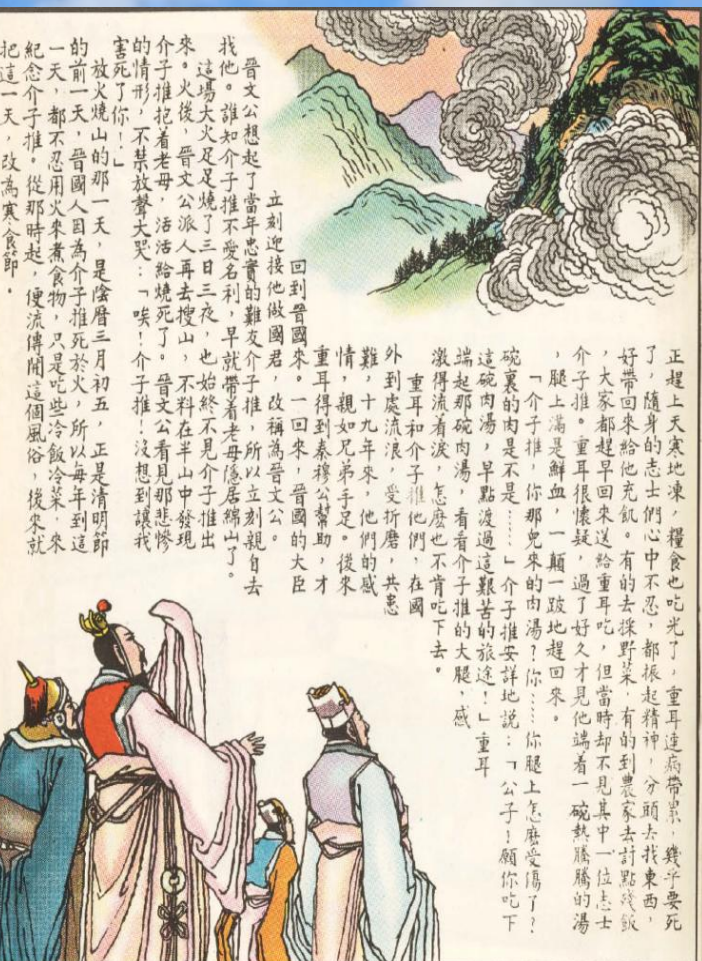 正趕上天寒地凍，糧食也吃光了，重耳連病帶累，幾乎要死
了，隨身的志士們心中不忍，都振起精神，分頭去找東西，
好帶回來給他充飢。有的去採野菜，有的到農家去討點殘飯
，大家都趕早回來送給重耳吃，但當時却不見其中一位志士
介子推。重耳很懷疑，過了好久才見他端着一碗熱騰騰的湯
，腿上滿是鮮血，一顛一跛地趕回來。
「介子推，你那兒來的肉湯？你……你腿上怎麽受傷了？
碗裏的肉是不是……」介子推安詳地説：「公子！願你吃下
這碗肉湯，早點渡過這艱苦的旅途！」重耳
端起那碗肉湯，看看介子推的大腿，感
激得流着淚，怎麽也不肯吃下去。
重耳和介子推他們，在國
外到處流浪，受折磨，共患
難，十九年來，他們的感
情，親如兄弟手足。後來
重耳得到秦穆公幫助，才
回到晉國來。一回來，晉國的大臣
立刻迎接他做國君，改稱為晉文公。
晉文公想起了當年忠實的難友介子推，所以立刻親自去
找他。誰知介子推不愛名利，早就帶着老母隱居綿山了。
這場大火足足燒了三日三夜，也始終不見介子推出
來。火後，晉文公派人再去搜山，不料在半山中發現
介子推抱着老母，活活給燒死了。晉文公看見那悲慘
的情形，不禁放聲大哭：「唉！介子推！沒想到讓我
害死了你！」
放火燒山的那一天，是陰曆三月初五，正是清明節
的前一天，晉國人因為介子推死於火，所以每年到這
一天，都不忍用火來煮食物，只是吃些冷飯冷菜，來
紀念介子推。從那時起，便流傳開這個風俗，後來就
把這一天，改為寒食節。